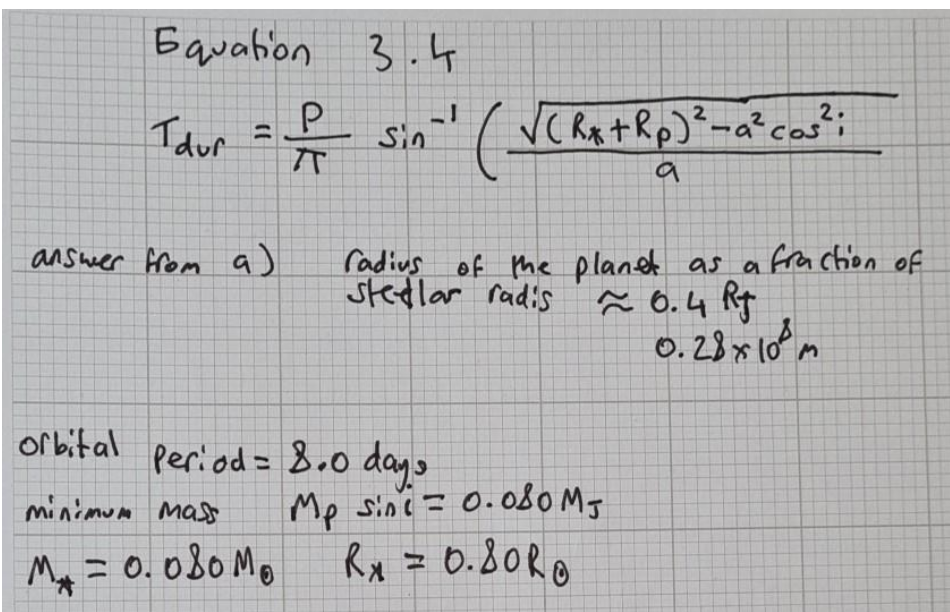 Equation 3.4
T_dur = P/π sin⁻¹ ( √(R* + Rp)² − a² cos² i / a
answer from a) radius of the planet as a fraction of
stellar radis ≈ 0.4 RJ
0.28 × 10⁸ m
orbital period = 8.0 days
minimum mass Mp sin i = 0.080 MJ
M* = 0.080 M☉ R* = 0.80 R☉